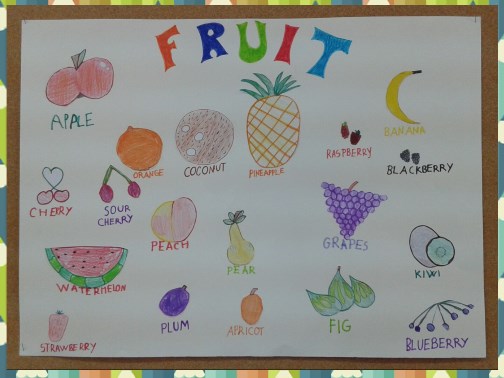 FRUIT
APPLE
BANANA
ORANGE
COCONUT
PINEAPPLE
RASPBERRY
BLACKBERRY
CHERRY
SOUR
CHERRY
PEACH
PEAR
GRAPES
KIWI
WATERMELON
PLUM
APRICOT
FIG
BLUEBERRY
STRAWBERRY